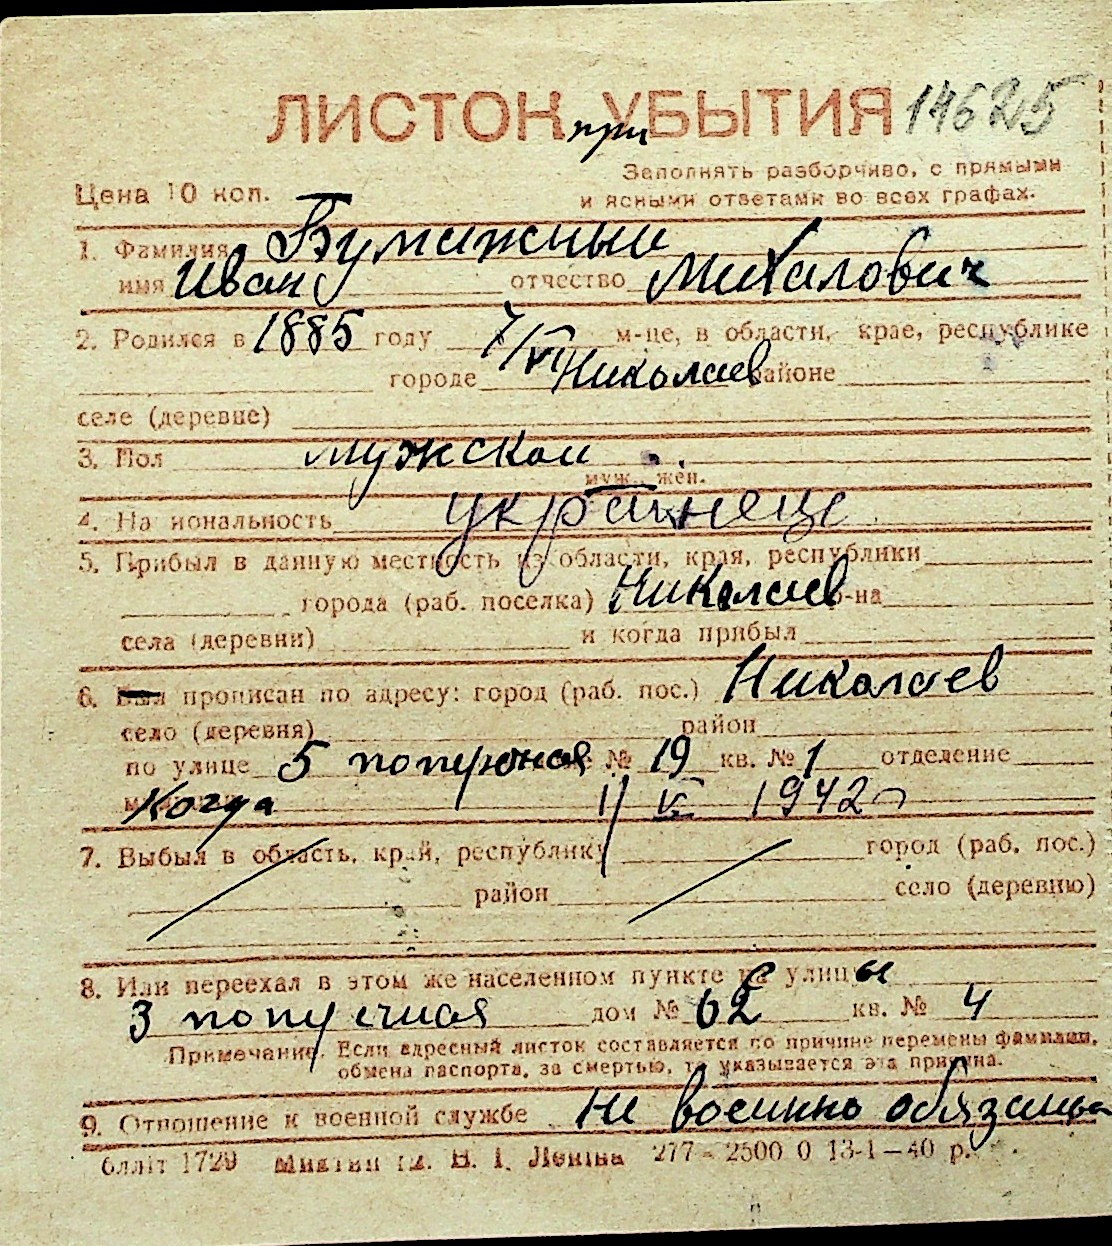 ЛИСТОК при УБЫТИЯ 14625
Заполнять разборчиво, с прямыми
Цена 10 коп. и ясными ответами во всех графах.
1. Фамилия Бумажный
имя Иван отчество Михалович
2. Родился в 1885 году 7/VI м-це, в области, крае, республике
городе Николаев районе
селе (деревне)
3. Пол мужской
муж. жен.
4. Национальность украинец
5. Прибыл в данную местность из области, края, республики
города (раб. поселка) Николаев р-на
села (деревни) и когда прибыл
6. Был прописан по адресу: город (раб. пос.) Николаев
село (деревня) район
по улице 5 поперечная № 19 кв. № 1 отделение
Когда 1/V 1942 г
7. Выбыл в область, край, республику город (раб. пос.)
район село (деревню)
8. Или переехал в этом же населенном пункте на улицы
3 поперечная дом № 62 кв. № 4
Примечание. Если адресный листок составляется по причине перемены фамилии,
обмена паспорта, за смертью, то указывается эта причина.
9. Отношение к военной службе Не военно обязаный
блліт 1729 В. І. Леніна 277 - 2500 0 13-1-40 р.